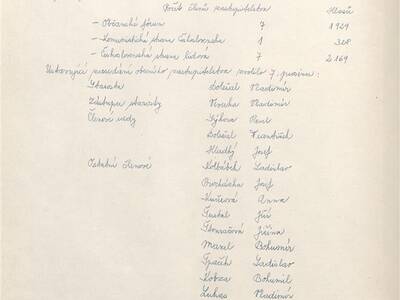 Počet členů zastupitelstva Hlasů
- Občanské fórum 7 1929
- Komunistická strana Československa 1 328
- Československá strana lidová 7 2169
Ustavující zasedání obecního zastupitelstva zvolilo 7. prosince:
Starosta Doležal Vladimír
Zástupce starosty Vladimír
Členové rady Sýkora Karel
Doležal František
Hladký Josef
Ostatní členové Kolbábek Ladislav
Procházka Josef
Kučerová Anna
Jiří
Jiřina
Bohumír
Špaček Ladislav
Kobza Bohumil
Lukas Vladimír